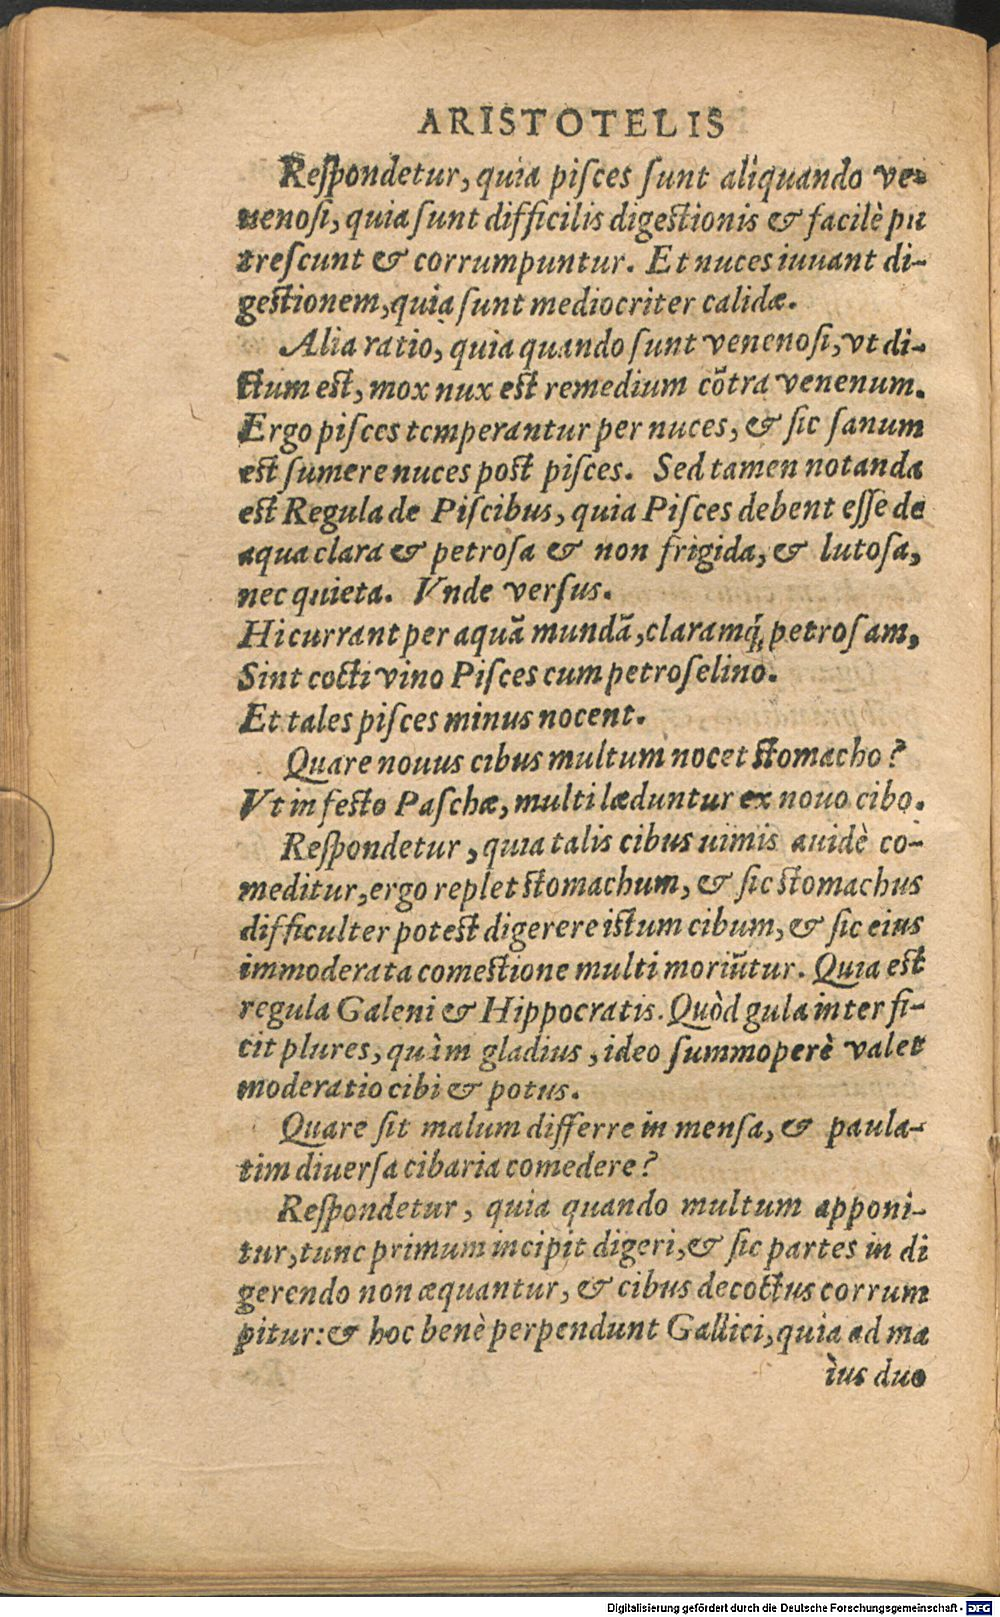 ARISTOTELIS
Reſpondetur, quia piſces ſunt aliquando ve-
uenoſi, quia ſunt difficilis digeſtionis & facilè pu
treſcunt & corrumpuntur. Et nuces iuuant di-
geſtionem, quia ſunt mediocriter calidæ.
Alia ratio, quia quando ſunt venenoſi, vt di-
ctum eſt, mox nux eſt remedium cõtra venenum.
Ergo piſces temperantur per nuces, & ſic ſanum
eſt ſumere nuces poſt piſces. Sed tamen notanda
eſt Regula de Piſcibus, quia Piſces debent eſſe de
aqua clara & petroſa & non frigida, & lutoſa,
nec quieta. Vnde verſus.
Hi currant per aquã mundã, claramq́; petroſam,
Sint cocti vino Piſces cum petroſelino.
Et tales piſces minus nocent.
Quare nouus cibus multum nocet ſtomacho?
Vt in feſto Paſchæ, multi læduntur ex nouo cibo.
Reſpondetur, quia talis cibus uimis auidè co-
meditur, ergo replet ſtomachum, & ſic ſtomachus
difficulter poteſt digerere iſtum cibum, & ſic eius
immoderata comeſtione multi moriũtur. Quia eſt
regula Galeni & Hippocratis. Quòd gula interfi-
cit plures, quàm gladius, ideo ſummoperè valet
moderatio cibi & potus.
Quare ſit malum differre in menſa, & paula-
tim diuerſa cibaria comedere?
Reſpondetur, quia quando multum apponi-
tur, tunc primum incipit digeri, & ſic partes in di
gerendo non æquantur, & cibus decoctus corrum
pitur: & hoc benè perpendunt Gallici, quia ad ma
ius duo
Digitalisierung gefördert durch die Deutsche Forschungsgemeinschaft - DFG